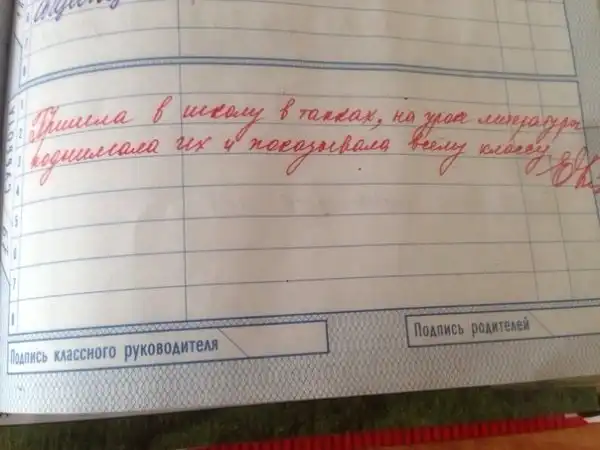 Пришла в школу в тапках, на уроке литературы
поднимала их и показывала всему классу
1
2
3
4
5
6
7
8
Подпись классного руководителя
Подпись родителей